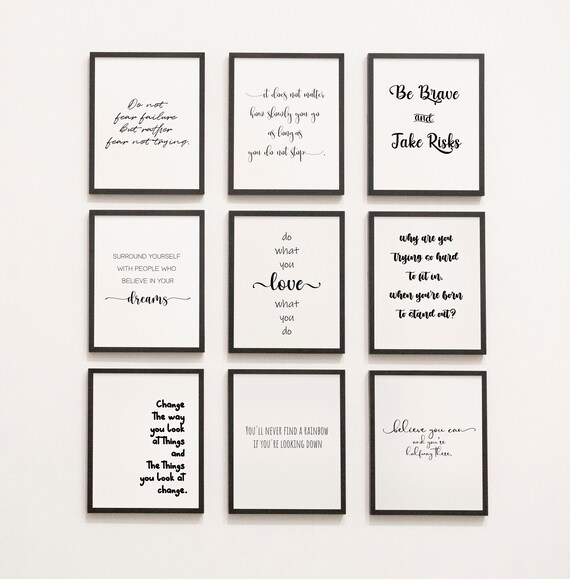 Do not
fear failure
but rather
fear not trying.
it does not matter
how slowly you go
as long as
you do not stop.
Be Brave
and
Take Risks
SURROUND YOURSELF
WITH PEOPLE WHO
BELIEVE IN YOUR
dreams
do
what
you
love
what
you
do
why are you
trying so hard
to fit in,
when you're born
to stand out?
Change
The way
you look
at Things
and
The Things
you look at
change.
YOU'LL NEVER FIND A RAINBOW
IF YOU'RE LOOKING DOWN
believe you can
and you're
halfway there.